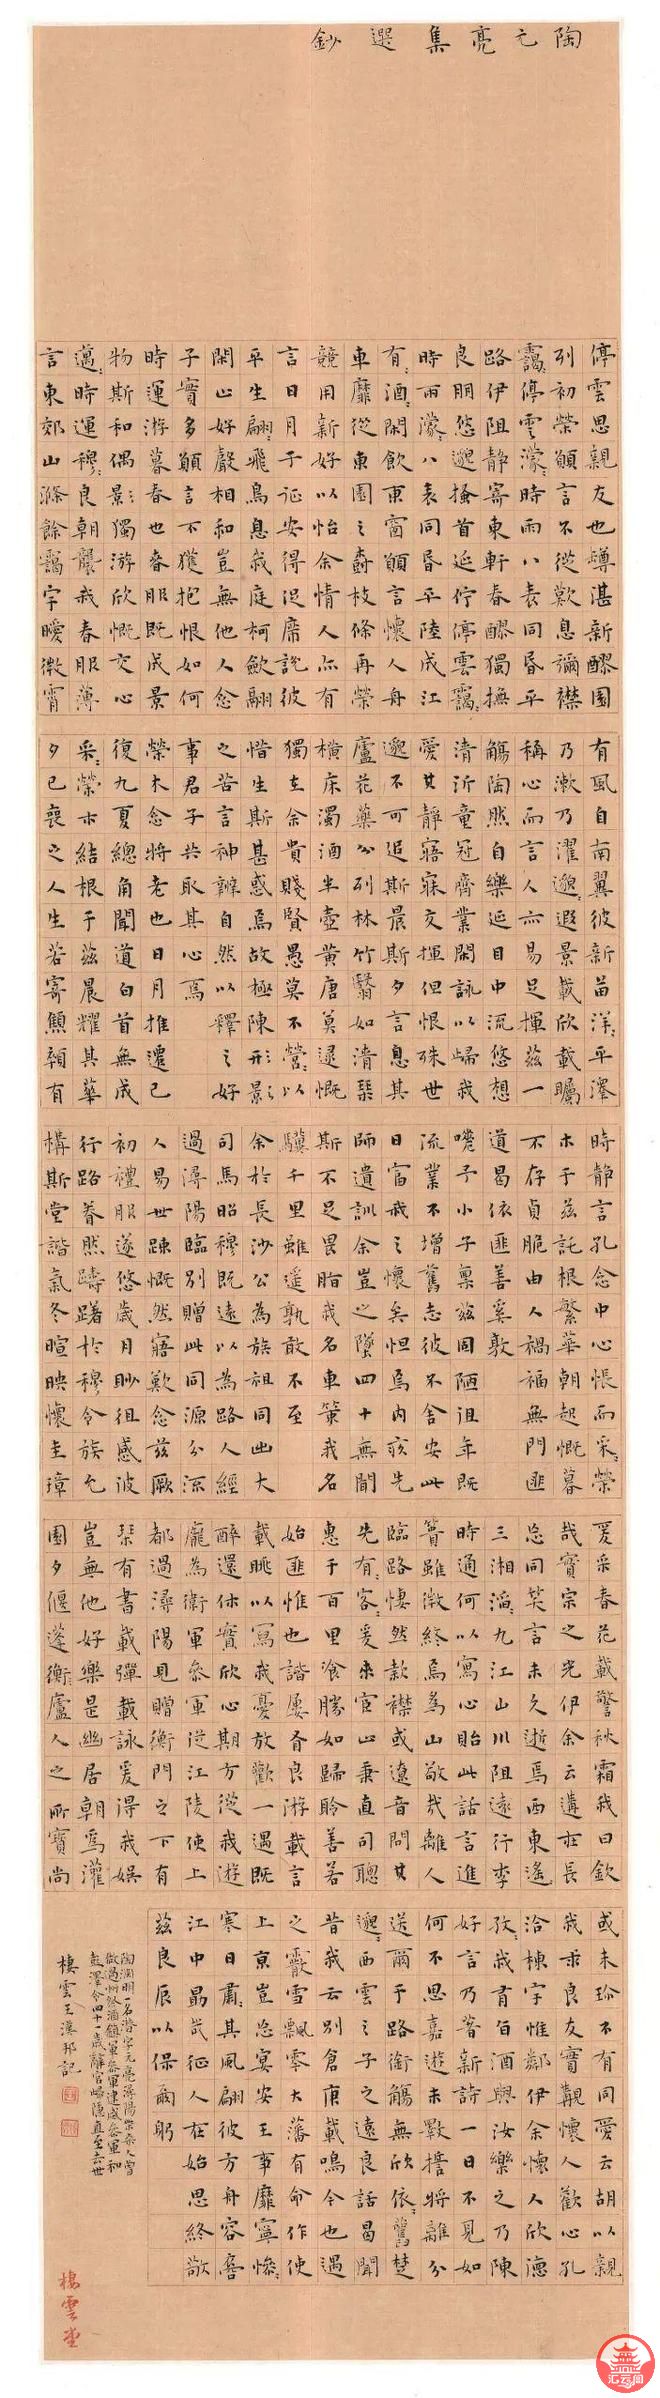 陶元亮集選鈔
停雲思親友也罇湛新醪園
列初榮願言不從歎息彌襟
靄〻停雲濛〻時雨八表同昏平
路伊阻靜寄東軒春醪獨撫
良朋悠邈搔首延佇停雲靄〻
時雨濛〻八表同昏平陸成江
有〻酒閑飲東窗願言懷人舟
車靡從東園之樹枝條再榮
競用新好以怡余情人亦有
言日月于征安得促席說彼
平生翩〻飛鳥息我庭柯斂翮
閑止好聲相和豈無他人念
子實多願言不獲抱恨如何
時運游暮春也春服既成景
物斯和偶影獨游欣慨交心
邁〻時運穆〻良朝襲我春服薄
言東郊山滌餘靄宇曖微霄
有風自南翼彼新苗洋〻平澤
乃漱乃濯邈〻遐景載欣載矚
稱心而言人亦易足揮茲一
觴陶然自樂延目中流悠想
清沂童冠齊業閑詠以歸我
愛其靜寤寐交揮但恨殊世
邈不可追斯晨斯夕言息其
廬花藥分列林竹翳如清琴
橫床濁酒半壺黃唐莫逮慨
獨在余貴賤賢愚莫不營〻以
惜生斯甚惑焉故極陳形影
之苦言神辨自然以釋之好
事君子共取其心焉
榮木念將老也日月推遷已
復九夏總角聞道白首無成
采〻榮木結根于茲晨耀其華
夕已喪之人生若寄顦顇有
時靜言孔念中心悵而采〻榮
木于茲託根繁華朝起慨暮
不存貞脆由人禍福無門匪
道曷依匪善奚敦
嗟予小子稟茲固陋徂年既
流業不增舊志彼不舍安此
日富我之懷矣怛焉內疚先
師遺訓余豈之墜四十無聞
斯不足畏脂我名車策我名
驥千里雖遥孰敢不至
余於長沙公為族祖同出大
司馬昭穆既遠以為路人經
過潯陽臨別贈此同源分流
人易世踈慨然寤歎念茲厥
初禮服遂悠歲月眇徂感彼
行路眷然躊躇於穆令族允
構斯堂諧氣冬暄映懷圭璋
爰采春花載警秋霜我曰欽
哉實宗之光伊余云遘在長
忘同笑言未久逝焉西東遙〻
三湘滔〻九江山川阻遠行李
時通何以寫心貽此話言進
簣雖微終焉為山敬哉離人
臨路悽然款襟或遼音問其
先有〻客〻爰來宦止秉直司聰
惠于百里飡勝如歸聆善若
始匪惟也諧屢有良游載言
載眺以寫我憂放歡一遇既
醉還休實欣心期方從我遊
龐為衛軍參軍從江陵使上
都過潯陽見贈衡門之下有
琴有書載彈載詠爰得我娛
豈無他好樂是幽居朝為灌
園夕偃蓬衡〻廬人之所寶尚
或未珍不有同愛云胡以親
我求良友實覯懷人歡心孔
洽棟宇惟鄰伊余懷人欣德
孜〻我有旨酒與汝樂之乃陳
好言乃著新詩一日不見如
何不思嘉遊未斁誓將離分
送爾于路銜觴無欣依〻舊楚
邈〻西雲之子之遠良話曷聞
昔我云別倉庚載鳴今也遇
之霰雪飄零大藩有命作使
上京豈忘宴安王事靡寧慘〻
寒日肅〻其風翩彼方舟容裔
江中勗哉征人在始思終敬
茲良辰以保爾躬
陶淵明一名潛字元亮潯陽柴桑人曾
做過州祭酒鎮軍參軍建威參軍和
彭澤令四十一歲辭官歸隱直至去世
棲雲王漢邦記
棲雲堂
汇云阁